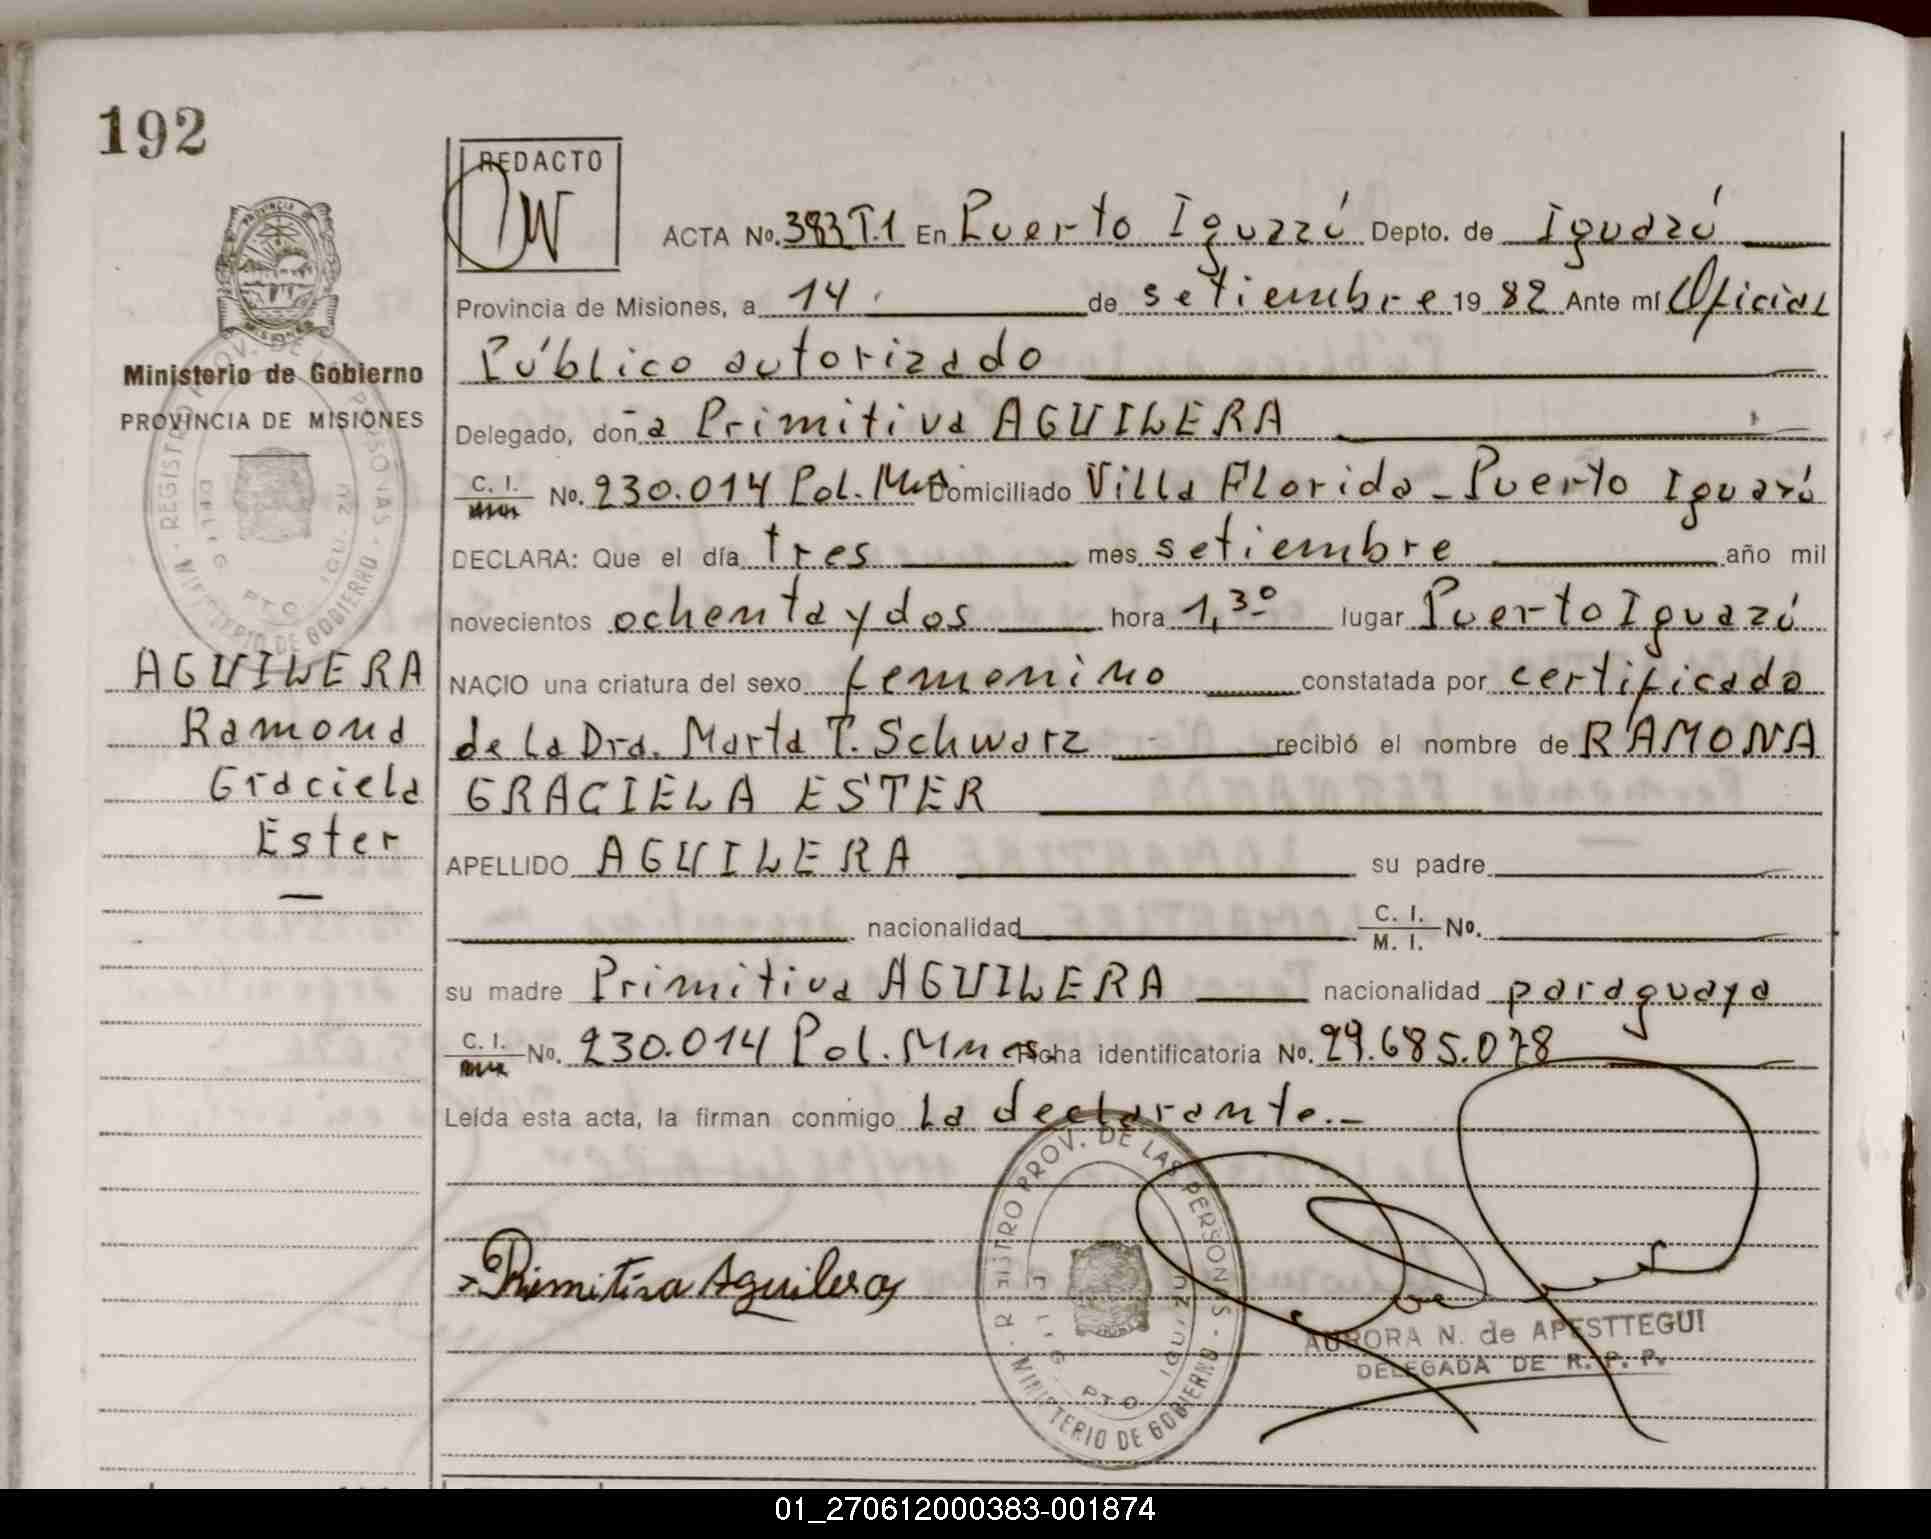 192
REDACTO
ACTA No. 383 T.1 En Puerto Iguazú Depto. de Iguazú
Provincia de Misiones, a 14 de setiembre 19 82 Ante mí Oficial
Público autorizado
Ministerio de Gobierno
PROVINCIA DE MISIONES
Delegado, doña Primitiva AGUILERA
C. I. No. 230.014 Pol. Mnes Domiciliado Villa Florida - Puerto Iguazú
DECLARA: Que el día tres mes setiembre año mil
novecientos ochenta y dos hora 1,30 lugar Puerto Iguazú
AGUILERA
Ramona
Graciela
Ester
NACIO una criatura del sexo femenino constatada por certificado
de la Dra. Marta T. Schwarz recibió el nombre de RAMONA
GRACIELA ESTER
APELLIDO AGUILERA su padre
nacionalidad C. I. M. I. No.
su madre Primitiva AGUILERA nacionalidad paraguaya
C. I. No. 230.014 Pol. Mnes. Ficha identificatoria No. 29.685.078
Leída esta acta, la firman conmigo la declarante.-
REGISTRO PROV. DE LAS PERSONAS - MINISTERIO DE GOBIERNO
DELEG. PTO. IGUAZU
Primitiva Aguilera
AURORA N. de APESTTEGUI
DELEGADA DE R. P. P.
01_270612000383-001874